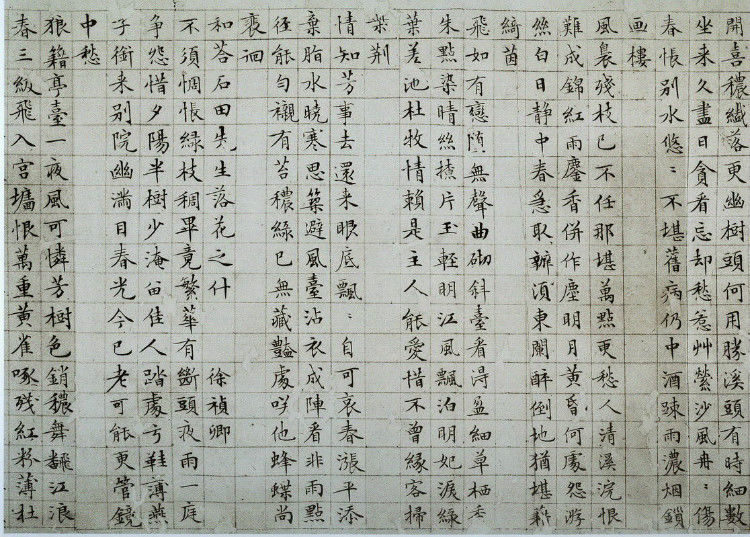 開喜穠纖落更幽樹頭何用勝溪頭有時細數
坐来久盡日貪看忘却愁惹艸縈沙風冉:傷
春悵别水悠:不堪舊病仍中酒踈雨濃烟鎖
画樓
風裊殘枝已不任那堪萬點更愁人清溪浣恨
難成錦紅雨麈香併作塵明月黄昏何處怨游
絲白日静中春急取辦湏東闌醉倒地猶堪藉
綺茵
飛如有戀墮無聲曲砌斜臺看淂盈細草栖香
朱點染晴絲撩片玉輕明江風飄泊明妃淚緑
葉差池杜牧情賴是主人能愛惜不曾緣客掃
柴荆
情知芳事去還来眼底飄:自可哀春漲平添
棄脂水曉寒思築避風臺沾衣成陣看非雨點
徑能勻襯有苔穠緑已無藏艷處笑他蜂蝶尚
裵徊
和荅石田先生落花之什 徐禎卿
不須惆悵緑枝稠畢竟繁華有斷頭夜雨一庭
争怨惜夕陽半樹少淹留佳人踏處弓鞋薄燕
子銜来别院幽滿目春光今已老可能更管鏡
中愁
狼籍亭臺一夜風可憐芳樹色銷穠舞飜江浪
春三級飛入宫墻恨萬重黄雀啄殘紅粉薄杜